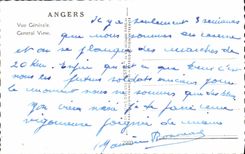 ANGERS
Vue Générale.
General View.
Il y a seulement 3 semaines
que nous sommes en caserne
et on se plonge des marches de
20 Km. Enfin qu'est ce que tout c'est
nous les futurs soldats encore pour
le moment nous ne sommes que des bleus
mon vieux je te faire une
vigoureuse poignée de main
Maurice